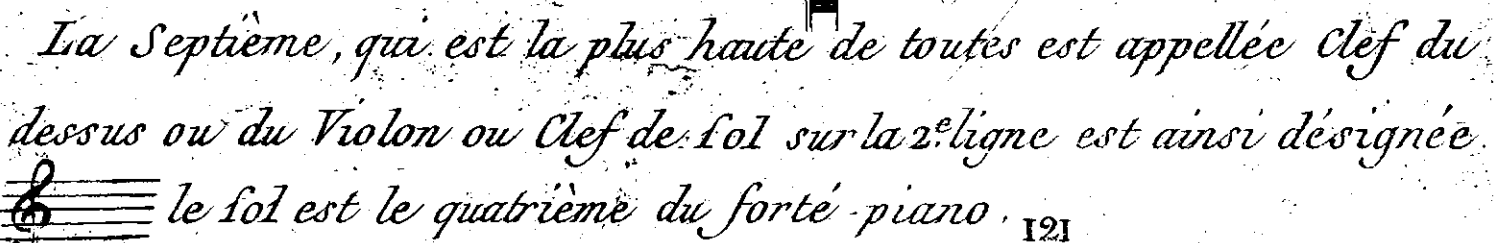 La Septième, qui est la plus haute de toutes est appellée Clef du
dessus ou du Violon ou Clef de sol sur la 2.e ligne est ainsi désignée.
le sol est le quatrième du forté-piano.
121